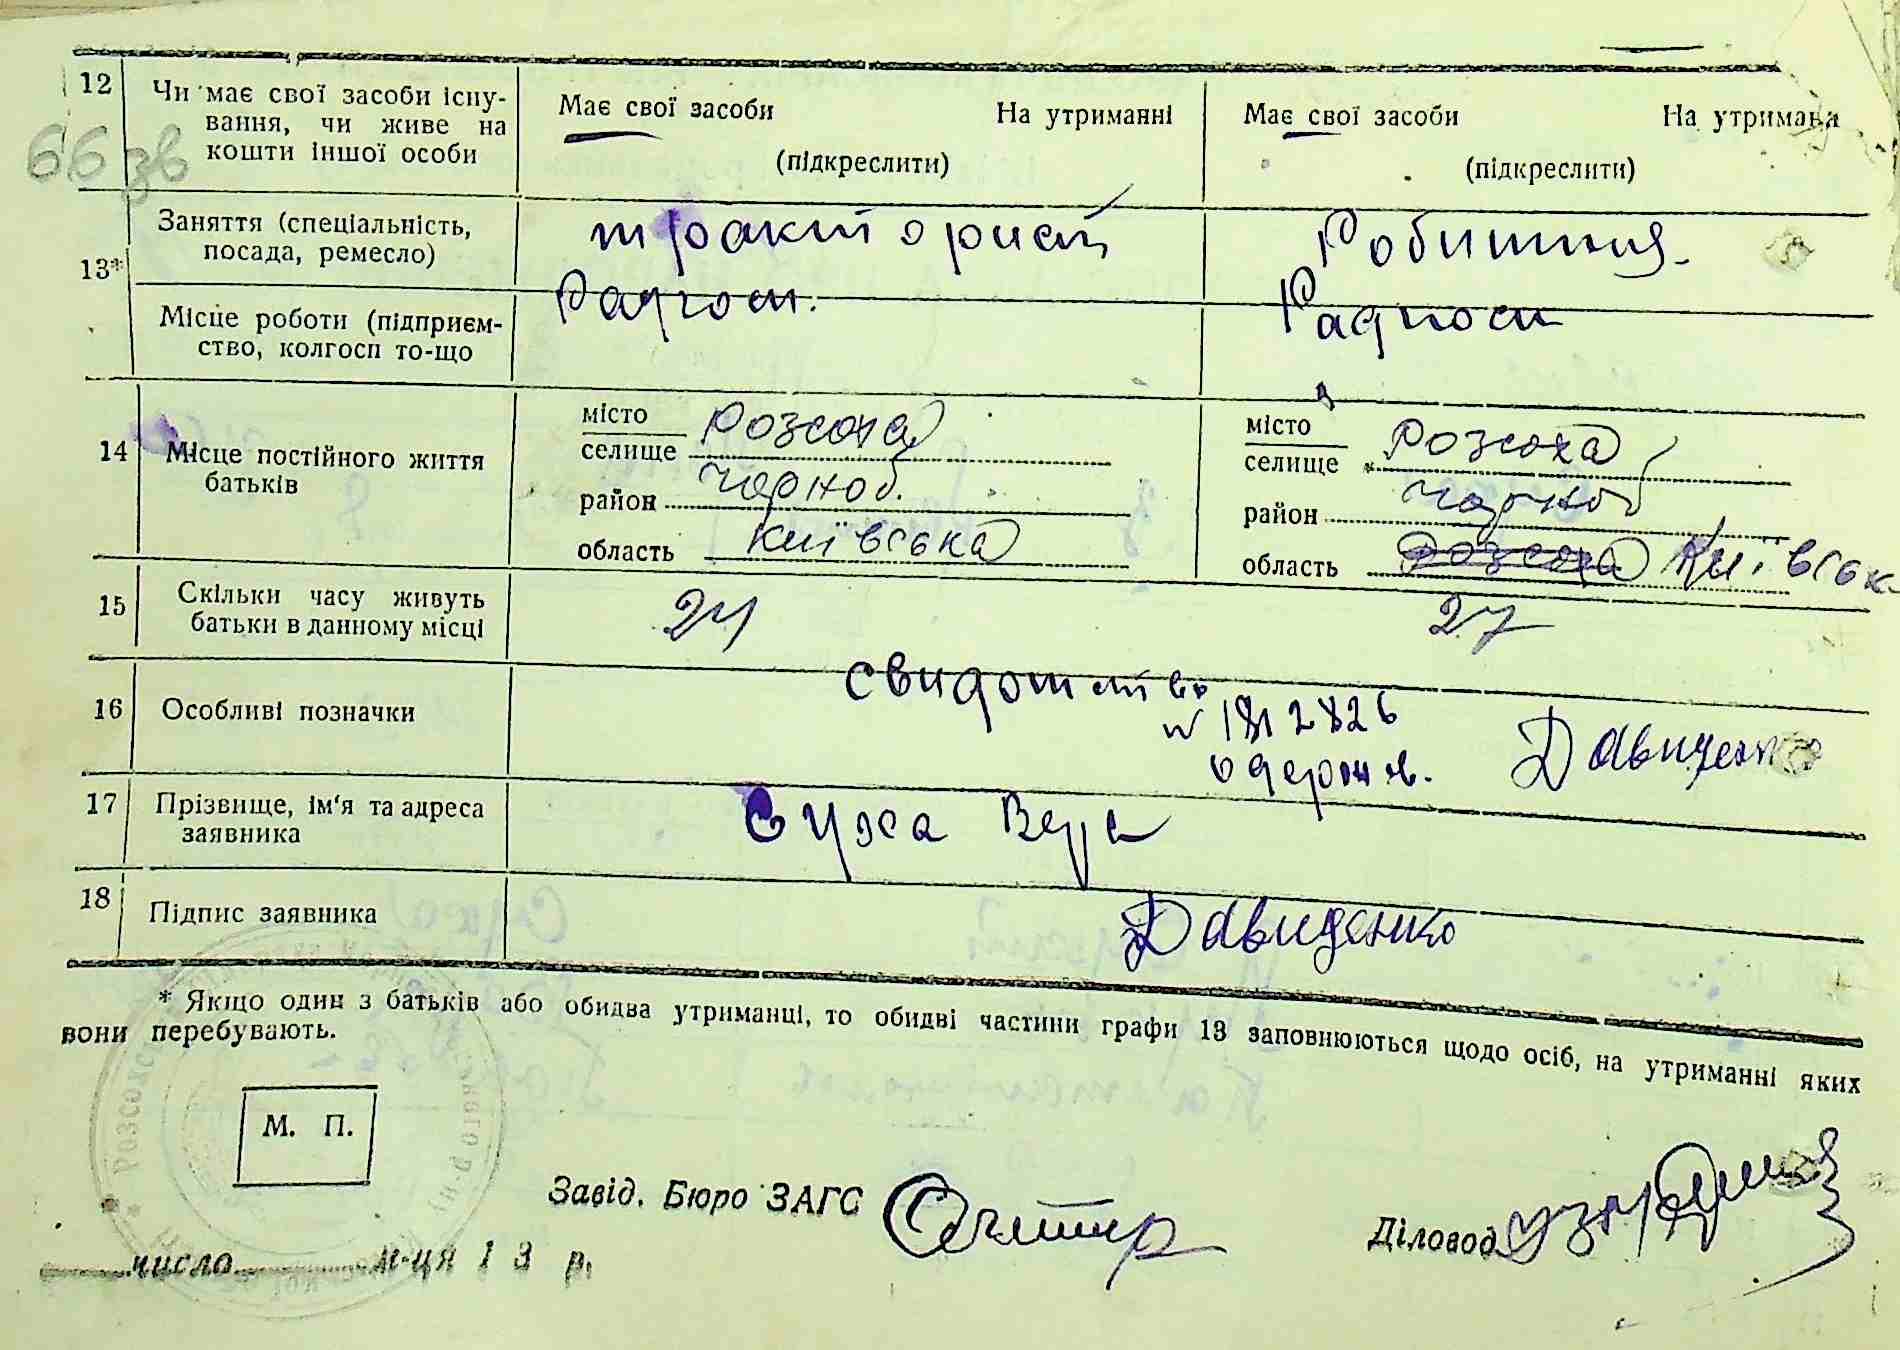 12
Чи має свої засоби існу-
вання, чи живе на
кошти іншої особи
Має свої засоби На утриманні
(підкреслити)
Має свої засоби На утримання
(підкреслити)
66 зв
13*
Заняття (спеціальність,
посада, ремесло)
тракторист
Робитниця.
Місце роботи (підприєм-
ство, колгосп то-що
Радгосп.
Радгосп
14
Місце постійного життя
батьків
місто
селище Розсоха
район Чорноб.
область Київська
місто
селище Розсоха
район Чорноб
область Розсоха Київськ.
15
Скільки часу живуть
батьки в данному місці
24
27
16
Особливі позначки
свидотство
№ 1812826
одержав.
Давиденко
17
Прізвище, ім'я та адреса
заявника
Суха Вера
18
Підпис заявника
Давиденко
* Якщо один з батьків або обидва утриманці, то обидві частини графи 13 заповнюються щодо осіб, на утриманні яких
вони перебувають.
М. П.
Завід. Бюро ЗАГС
Діловод
число м-ця 13 р.